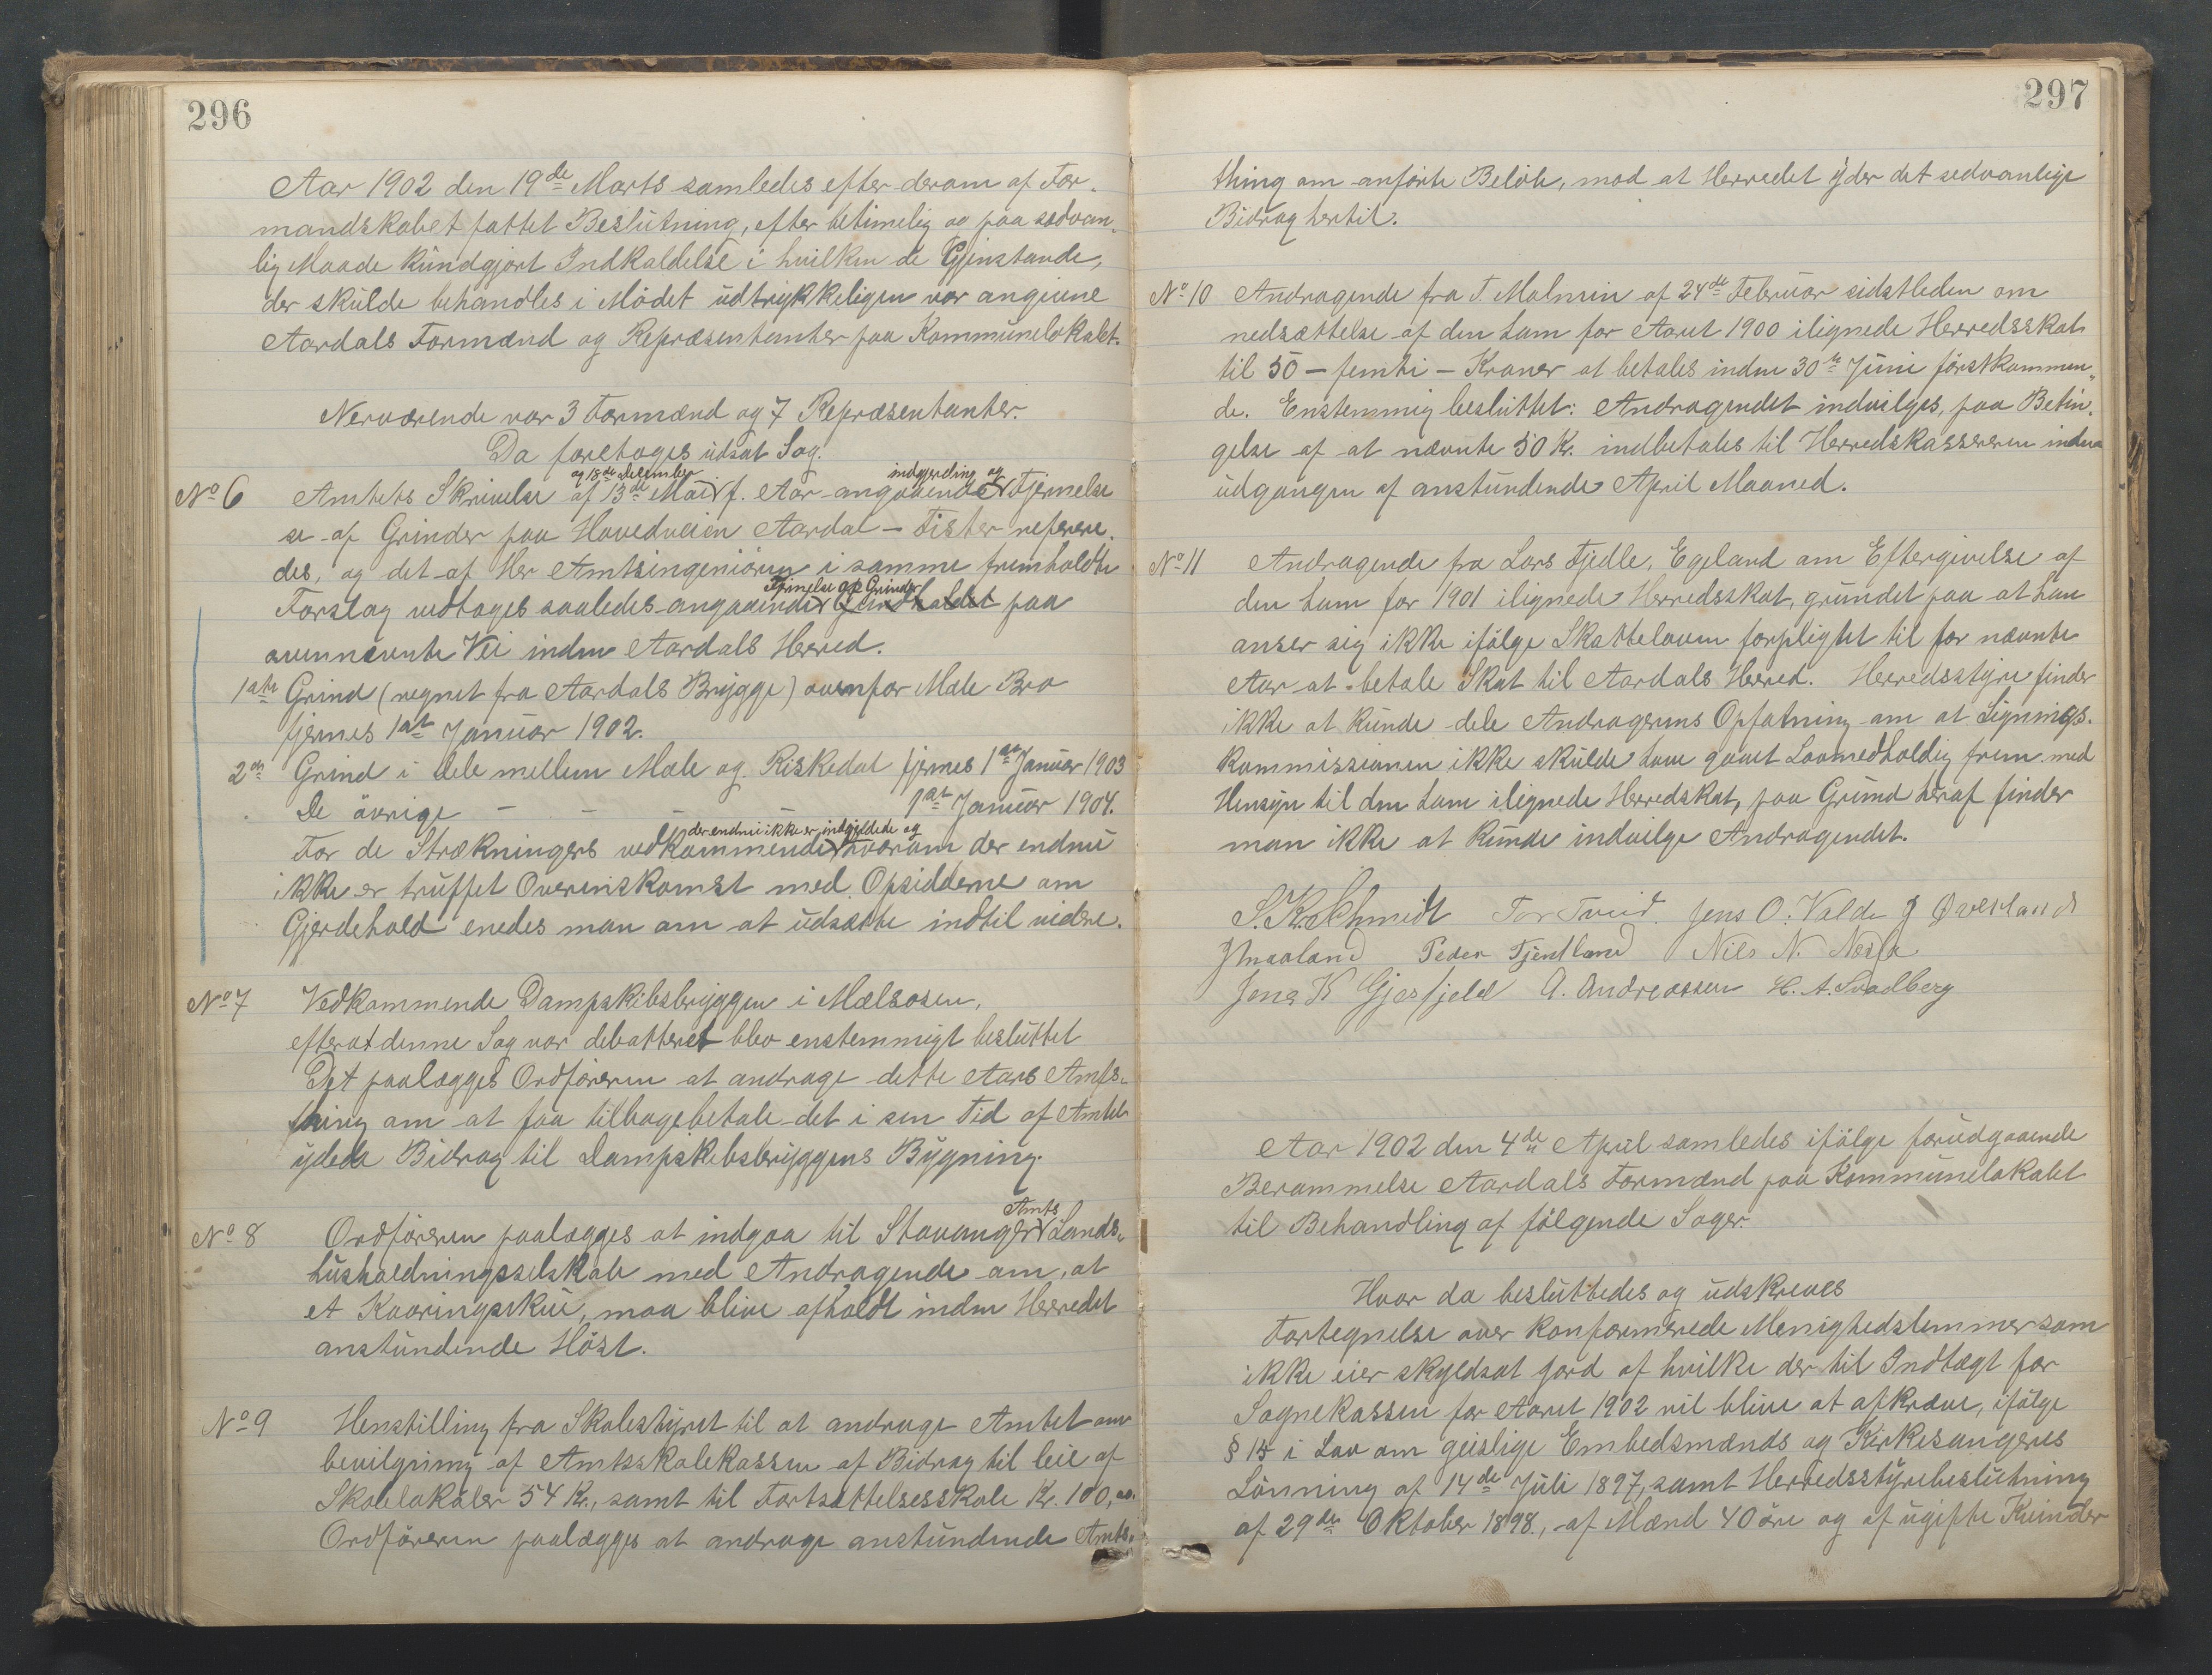 296
Aar 1902 den 19de Marts samledes efter derom af For-
mandskabet fattet Beslutning, efter betimelig og paa sedvan-
lig Maade kundgjort Indkaldelse i hvilken de Gjenstande,
der skulde behandles i Mödet udtrykkeligen var angivne
Aardals Formænd og Repræsentanter paa Kommunelokalet.
Nerværende var 3 Formænd og 7 Repræsentanter.
Da foretoges udsat Sag.
og 18de Desember indgjerding og
No 6 Amtets Skrivelse af 13de Mai f. Aar angaaende Fjernelse
se af Grinder paa Hovedveien Aardal - Tister referere-
des, og det af Her Amtsingeniören i samme fremholdte
Fjernelse af Grinder
Forslag vedtoges saaledes angaaende Grindholdet paa
ovennævnte Vei inden Aardals Herred.
1ste Grind (regnet fra Aardals Brygge) ovenfor Mæle Bro
fjernes 1ste Januar 1902.
2den Grind i Dele mellem Mæle og Riskedal fjernes 1ste Januar 1903
De övrige - - - - 1ste Januar 1904.
der endnu ikke er indgjerdede og
For de Strækningers vedkommende hvorom der endnu
ikke er truffet Overenskomst med Opsidderne om
Gjerdehold enedes man om at udsætte indtil videre.
No 7 Vedkommende Dampskibsbryggen i Mælsosen,
efterat denne Sag var debatteret blev enstemmigt besluttet
Det paalægges Ordföreren at andrage dette Aars Amts-
thing om at faa tilbagebetale det i sin Tid af Amtet
ydede Bidrag til Dampskibsbryggens Bygning.
Amts
No 8 Ordföreren paalægges at indgaa til Stavanger Lands-
husholdningsselskab med Andragende om, at
et Kaaringsskue, maa blive afholdt inden Herredet
anstundende Höst.
No 9 Henstilling fra Skolestyret til at andrage Amtet om
bevilgning af Amtsskolekassen af Bidrag til leie af
Skolelokaler 54 Kr., samt til Fortsættelsesskole Kr. 100,00.
Ordföreren paalægges at andrage anstundende Amts-
297
thing om anförte Belöb, mod at Herredet yder det sedvanlige
Bidrag hertil.
No 10 Andragende fra T. Malmin af 24de Februar sidstleden om
nedsættelse af den ham for Aaret 1900 ilignede Herredsskat
til 50 - femti - Kroner at betales inden 30te Juni förstkommen-
de. Enstemmig besluttet: Andragendet indvilges, paa Betin-
gelse af at nævnte 50 Kr. indbetales til Herredskassereren inden
udgangen af anstundende April Maaned.
No 11 Andragende fra Lars Fjedle, Egeland om Eftergivelse af
den ham for 1901 ilignede Herredsskat, grundet paa at han
anser sig ikke ifölge Skatteloven forpligtet til for nævnte
Aar at betale Skat til Aardals Herred. Herredsstyre finder
ikke at kunde dele Andragerens Opfatning om at Lignings-
kommissionen ikke skulde have gaaet Lovmedholdig frem med
Hensyn til den ham ilignede Herredskat, paa Grund heraf finder
man ikke at kunde indvilge Andragendet.
S. K. Schmidt Tor Tveid. Jens O. Valde J Øverland
J Maaland Peder Tjentland Nils N. Nessa
Jens K Gjesfjeld A. Andreassen H. A. Svadberg
Aar 1902 den 4de April samledes ifölge forudgaaende
Berammelse Aardals Formænd paa Kommunelokalet
til Behandling af fölgende Sager.
Hvor da besluttedes og udskreves
Fortegnelse over konformerede Menighedslemmer som
ikke eier skyldsat Jord af hvilke der til Indtægt for
Sognekassen for Aaret 1902 vil blive at afkræve, ifölge
§ 15 i Lov om geislige Embedsmænds og Kirkesangeres
Lönning af 14de Juli 1897, samt Herredsstyrebeslutning
af 29de Oktober 1898., af Mænd 40 öre og af ugifte Kvinder